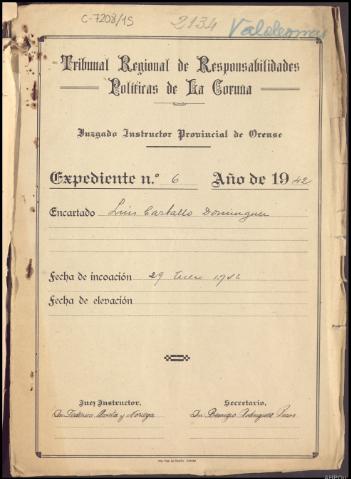 C-7208/15
2134
Tribunal Regional de Responsabilidades
Políticas de La Coruña
Juzgado Instructor Provincial de Orense
Expediente n.º 6 Año de 1942
Encartado Luis Carballo Dominguez
Fecha de incoación 29 Enero 1942
Fecha de elevación
Juez Instructor, Secretario,
y Noriega